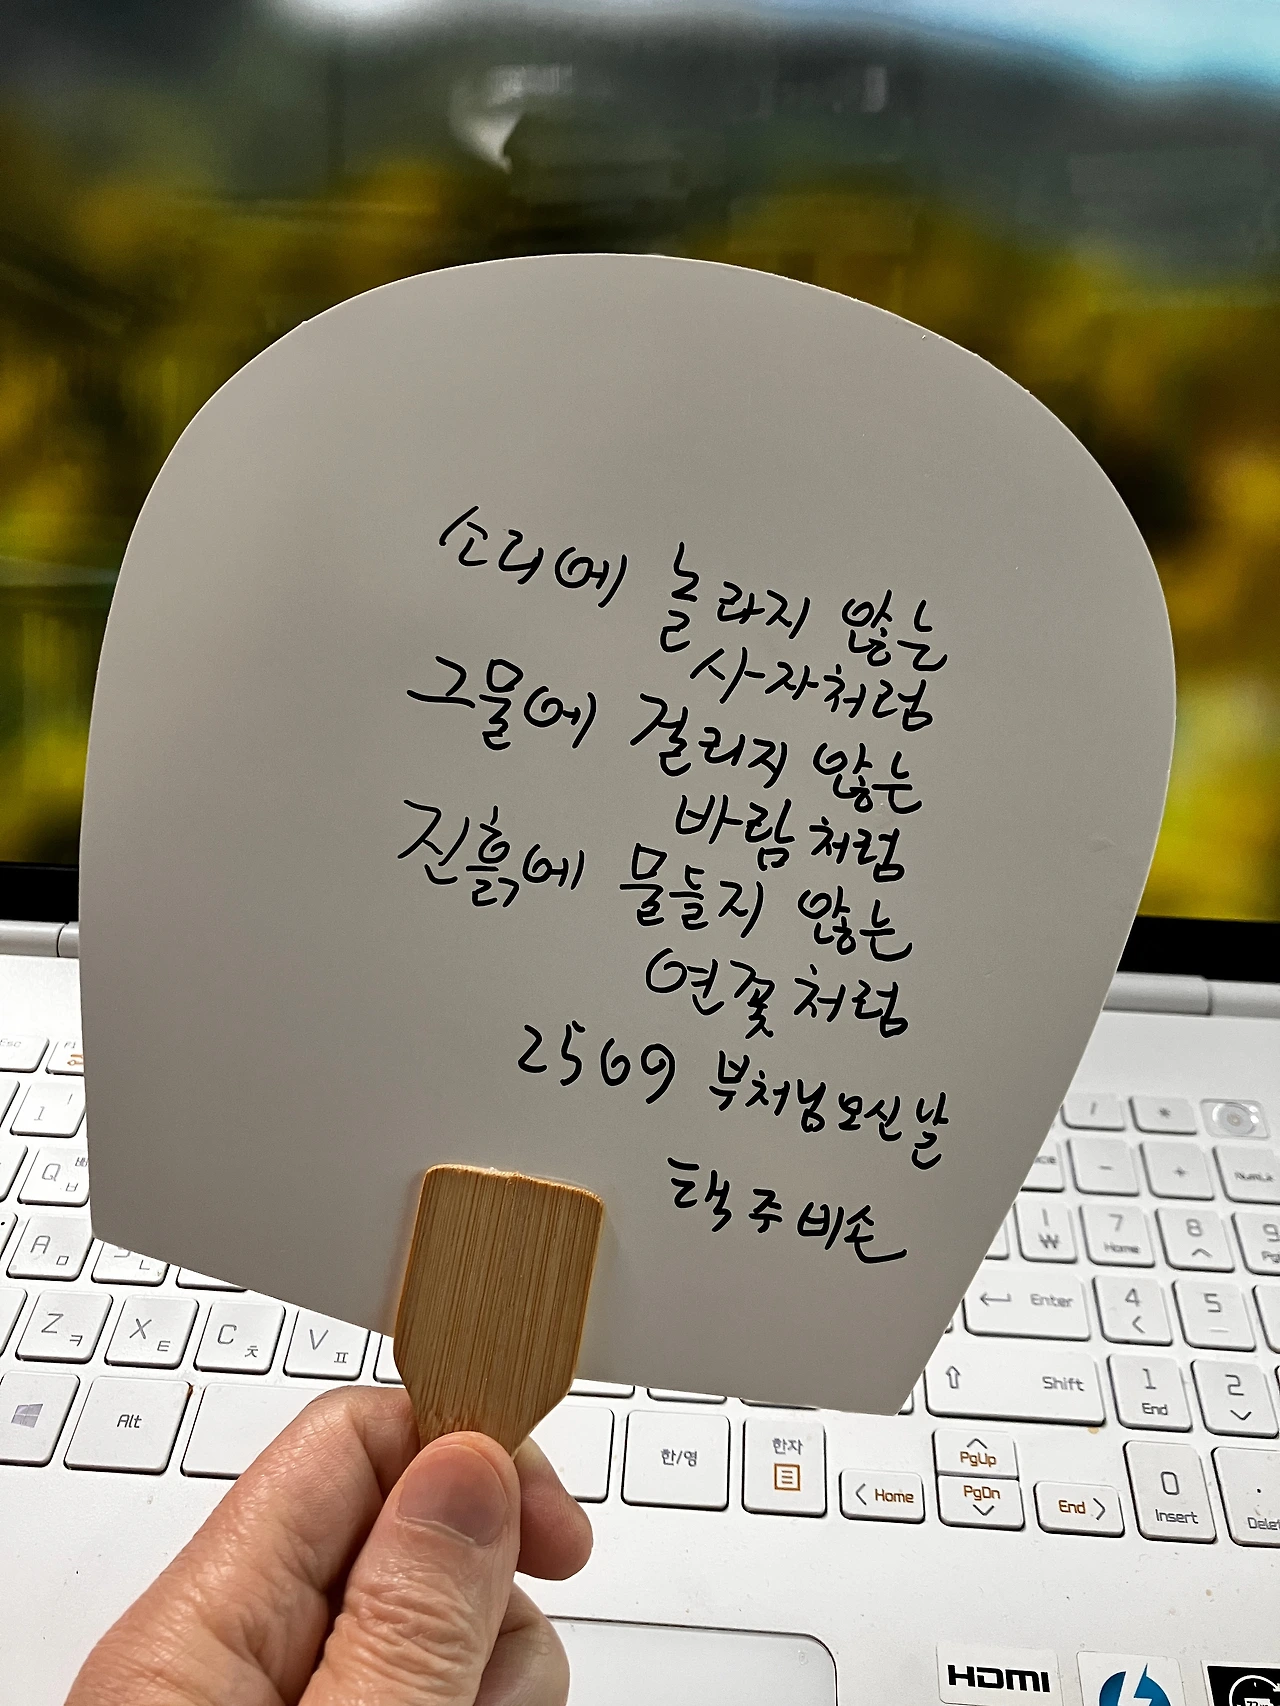 소리에 놀라지 않는
사자처럼
그물에 걸리지 않는
바람처럼
진흙에 물들지 않는
연꽃처럼
2569 부처님오신날
택주비손
Esc
F1
1 !
/
*
Q ㅂ ㅃ
-
+
NumLk
A ㅁ
S ㄴ
| ₩
7 Home
8
9
Z ㅋ
X ㅌ
C ㅊ
V ㅍ
Enter
4
5
Alt
Shift
1 End
2
한/영
한자
Home
PgUp
PgDn
End
0 Insert
.
HDMI